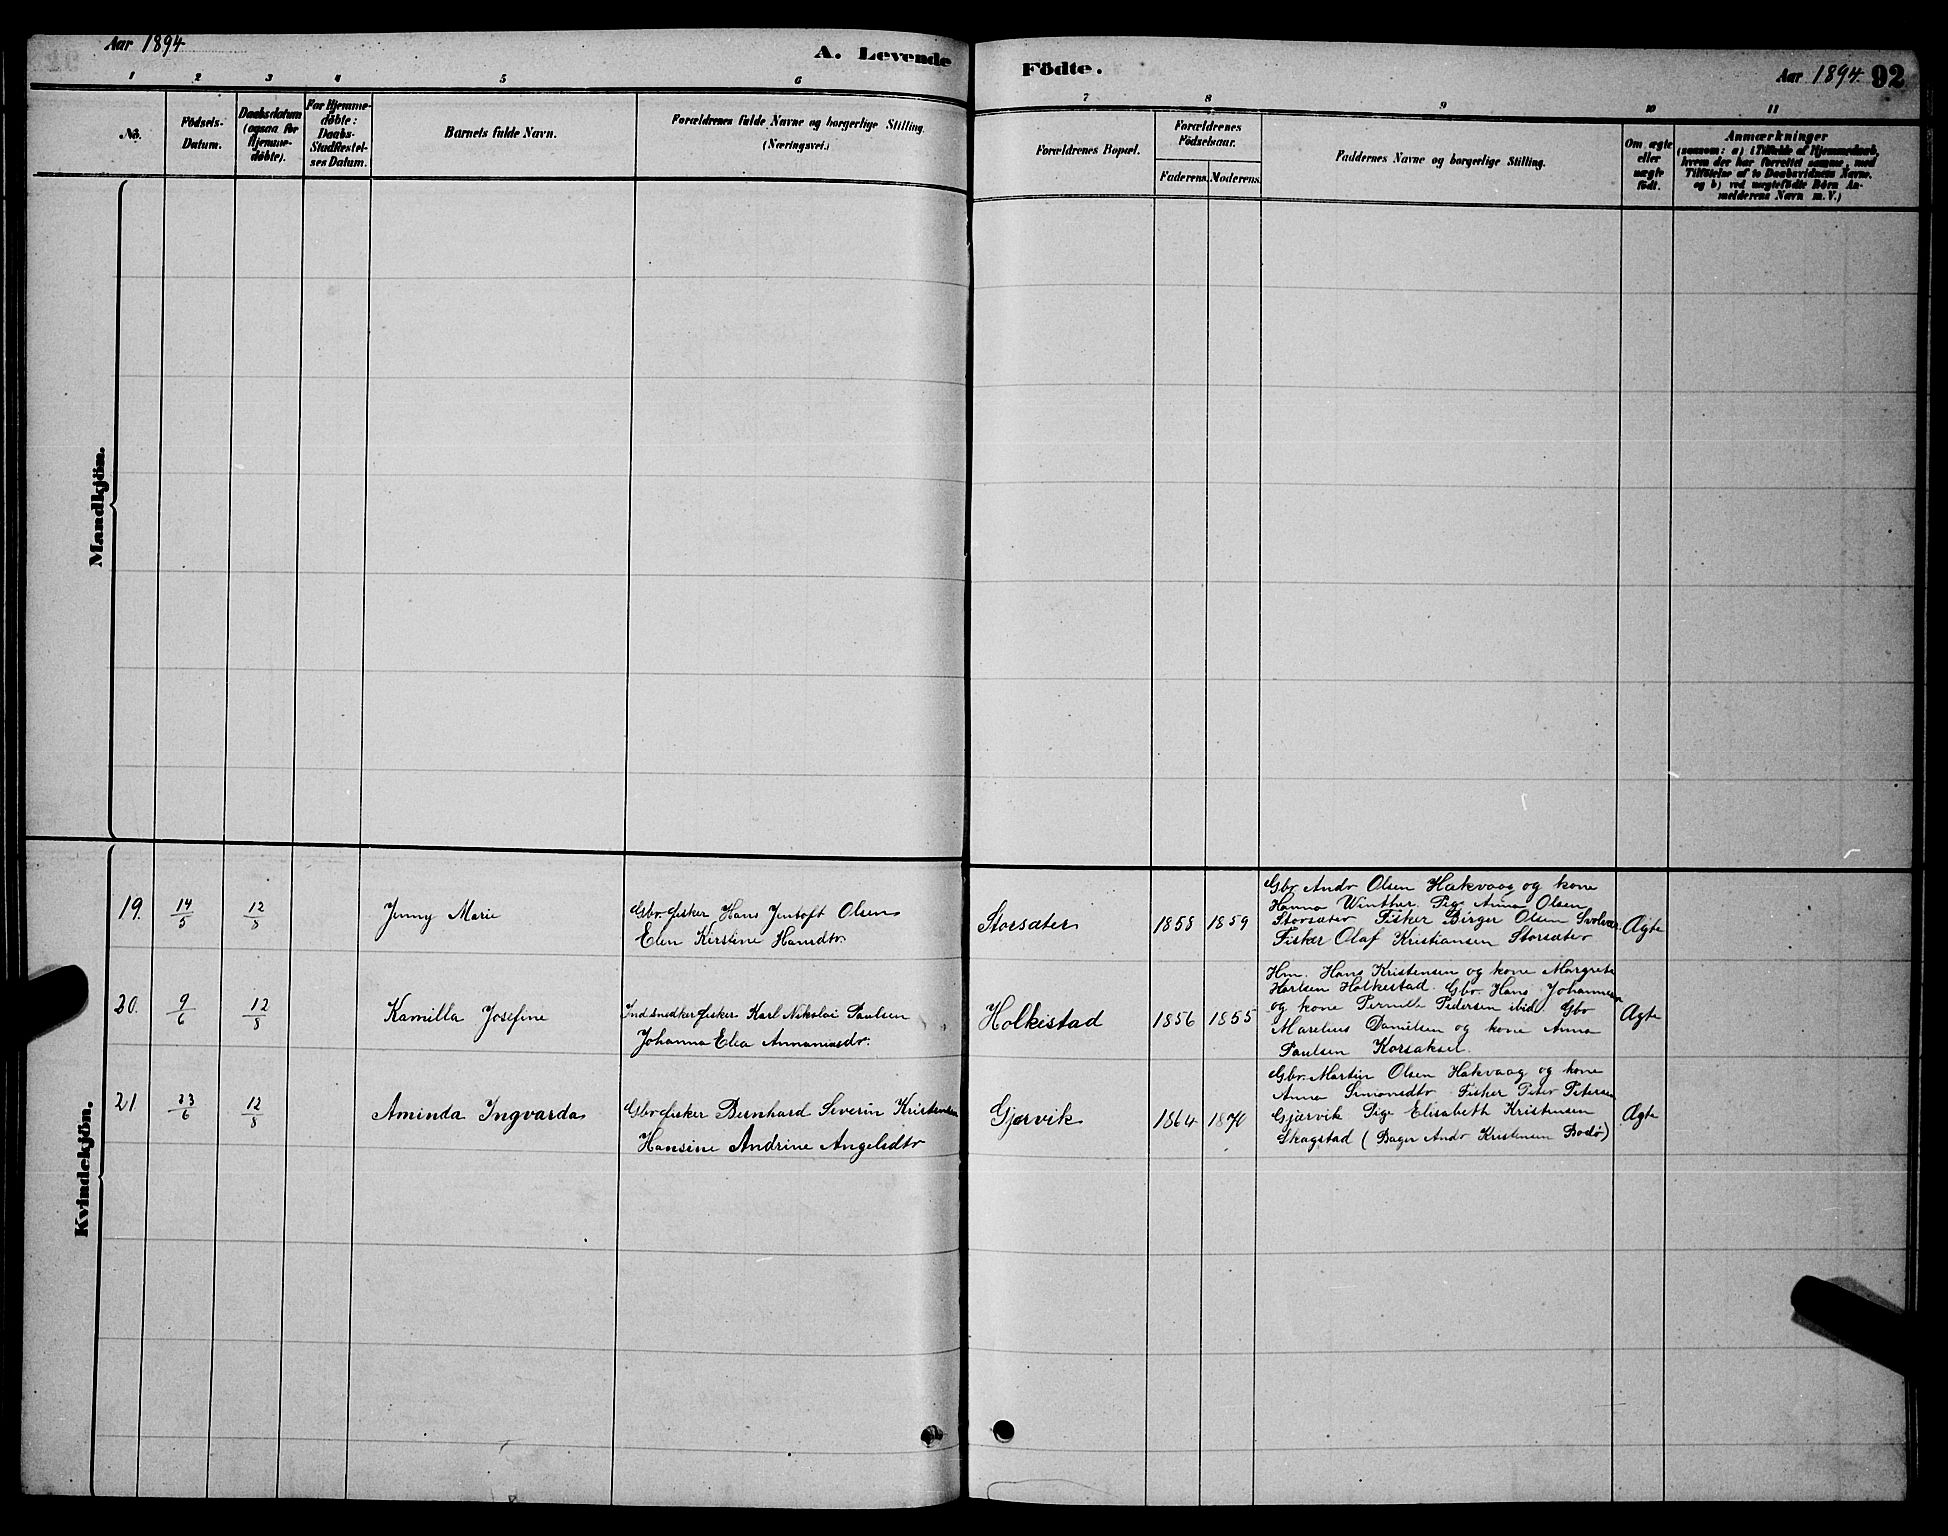 Aar 1894
A. Levende
Födte.
Aar 1894. 92
1 2 3 4 5 6
7 8 9 10 11
No.
Födsels-
Datum.
Daabsdatum
(ogsaa for
Hjemme-
döbte).
For Hjemme-
döbte:
Daabs-
Stadfæstel-
ses Datum.
Barnets fulde Navn.
Forældrenes fulde Navne og borgerlige Stilling.
(Næringsvei.)
Forældrenes Bopæl.
Forældrenes
Födselsaar.
Faderens. Moderens.
Faddernes Navne og borgerlige Stilling.
Om ægte
eller
uægte
födt.
Anmærkninger
(saasom: a) i Tilfælde af Hjemmedaab,
hvem der har forrettet samme, med
Tilföielse af to Daabsvidners Navne.
og b) ved uægtefödte Börn An-
melderens Navn m. V.)
Mandkjön.
Kvindekjön.
19. 14/5 12/8 Jenny Marie
Gbr. fisker Hans Jentoft Olsen
Elen Kirstine Hansdtr.
Storsæter 1858 1859
Gbr. Andr Olsen Hakvaag og kone
Hanna Winther. Pige Anna Olsen
Storsæter Fisker Birger Olsen Svolvær
Fisker Olaf Kristiansen Storsæter
Ægte
20. 9/6 12/8 Kamilla Josefine
Ind snedker fisker Karl Nikolai Paulsen
Johanna Elea Annaniasdr.
Holkestad 1856 1855
Hm. Hans Kristensen og kone Margrete
Karlsen Holkestad. Gbr. Hans Johannesen
og kone Pernille Pedersen ibid. Gbr
Marelius Danielsen og kone Anna
Paulsen Korsaksel.
Ægte
21 23/6 12/8 Aminda Ingvarda
Gbr fisker Bernhard Severin Kristensen
Hansine Andrine Angelsdtr
Gjærvik 1864 1870
Gbr. Martin Olsen Hakvaag og kone
Anna Simonsdtr Fisker Peter Petersen
Gjærvik Pige Elisabeth Kristensen
Skagstad (Bager Andr Kristensen Bodö)
Ægte